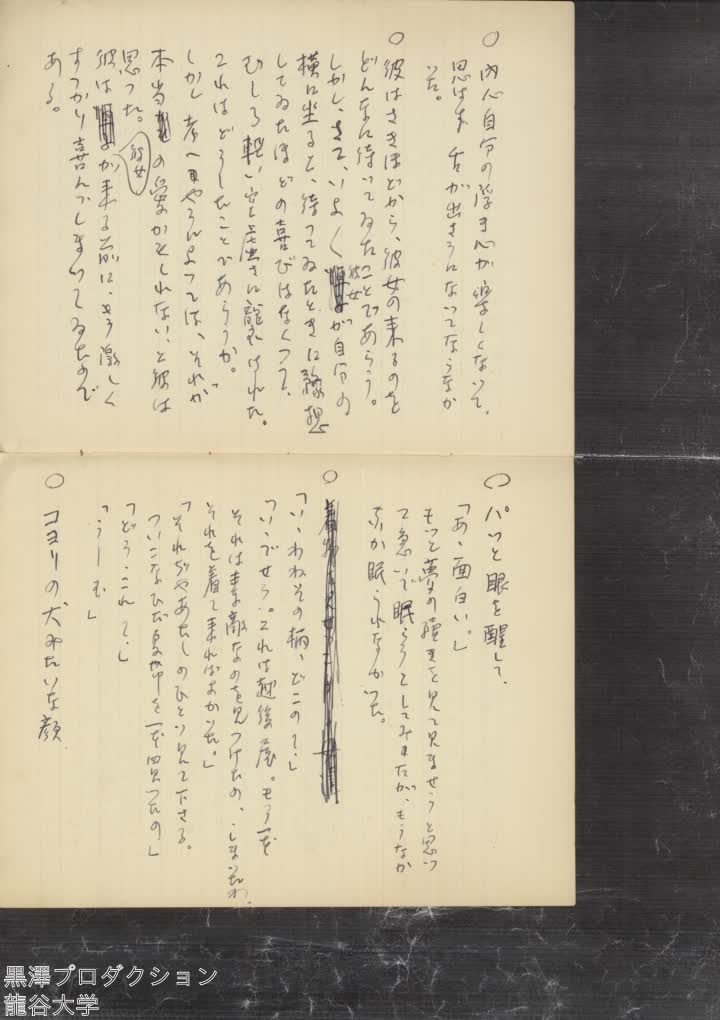 ○ 内心自分の浮き心が楽しくないて、
思はず 舌が出さうになってならなか
った。
○ 彼はさきほどから、彼女の来るのを
どんなに待いてゐたことであらう。
しかし、さて、いよ〱彼女が自分の
横に坐ると、待つてゐたときに予想
してゐたほどの喜びはなくつて、
むしろ軽い空虚さに襲はれた。
これはどうしたことであらうか。
しかし考へやうによつては、それが
本当の愛かもしれない、と彼は
思つた。
彼は彼女が来る前に、もう激しく
すつかり喜んでしまつてゐたので
ある。
○ パッと眼を醒して、
「あゝ面白い。」
もっと夢の続きを見て見ませうと思っ
て急いで眠らうとしてみましたが、もうなか
なか眠られなかった。
○
「いゝわねその柄、どこの？」
「いゝでせう。これは越後屋。もう一つ
それは素敵なのを見つけたの、しまいたわ、
それを着て来ればよかった。」
「それぢやあたしのひとつ見て下さる。
ついこなひだ
買つたの」
「どう、これ？」
「うーむ」
○ コヨリの犬みたいな顔
黒澤プロダクション
龍谷大学